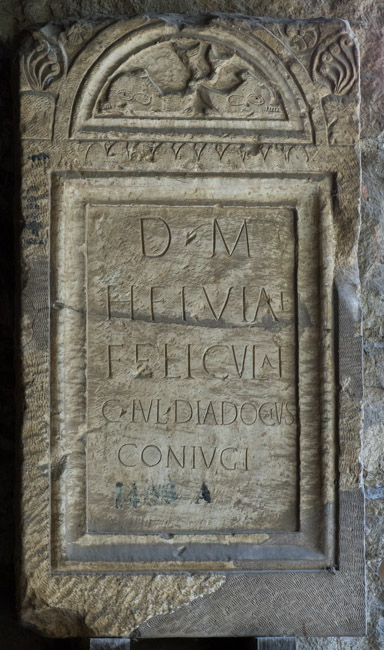 D M
HELVIAE
FELICVLAE
C·IVL·DIADOCVS
CONIVGI